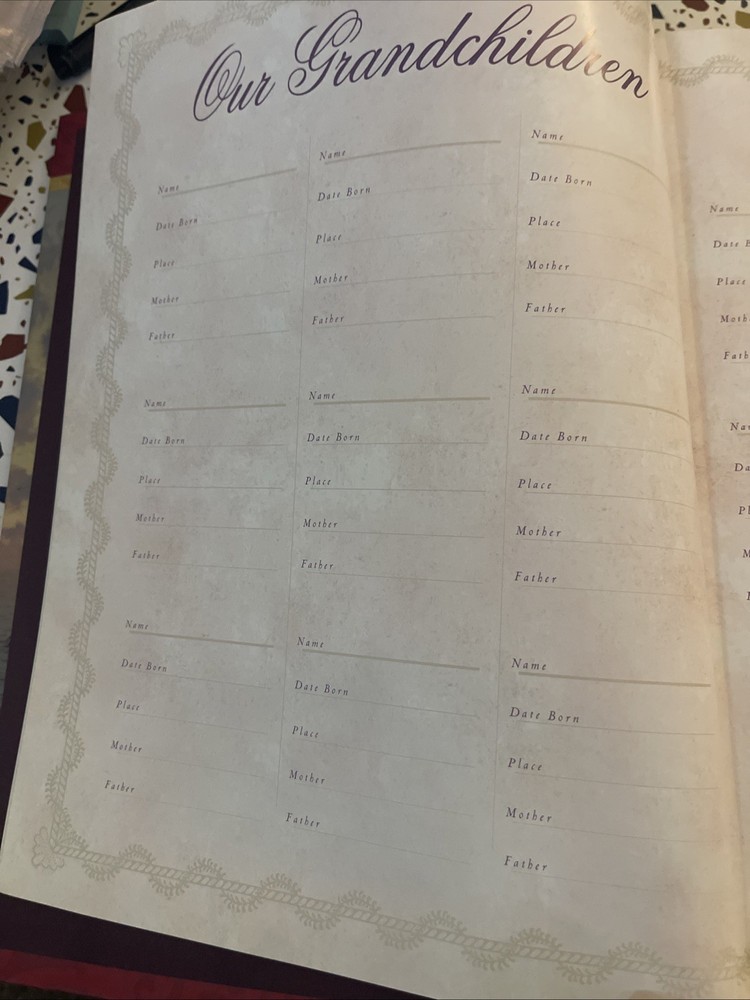 Our Grandchildren
Name
Date Born
Place
Mother
Father
Name
Date Born
Place
Mother
Father
Name
Date Born
Place
Mother
Father
Name
Date Born
Place
Mother
Father
Name
Date Born
Place
Mother
Father
Name
Date Born
Place
Mother
Father
Name
Date Born
Place
Mother
Father
Name
Date Born
Place
Mother
Father
Name
Date Born
Place
Mother
Father
Name
Date
Place